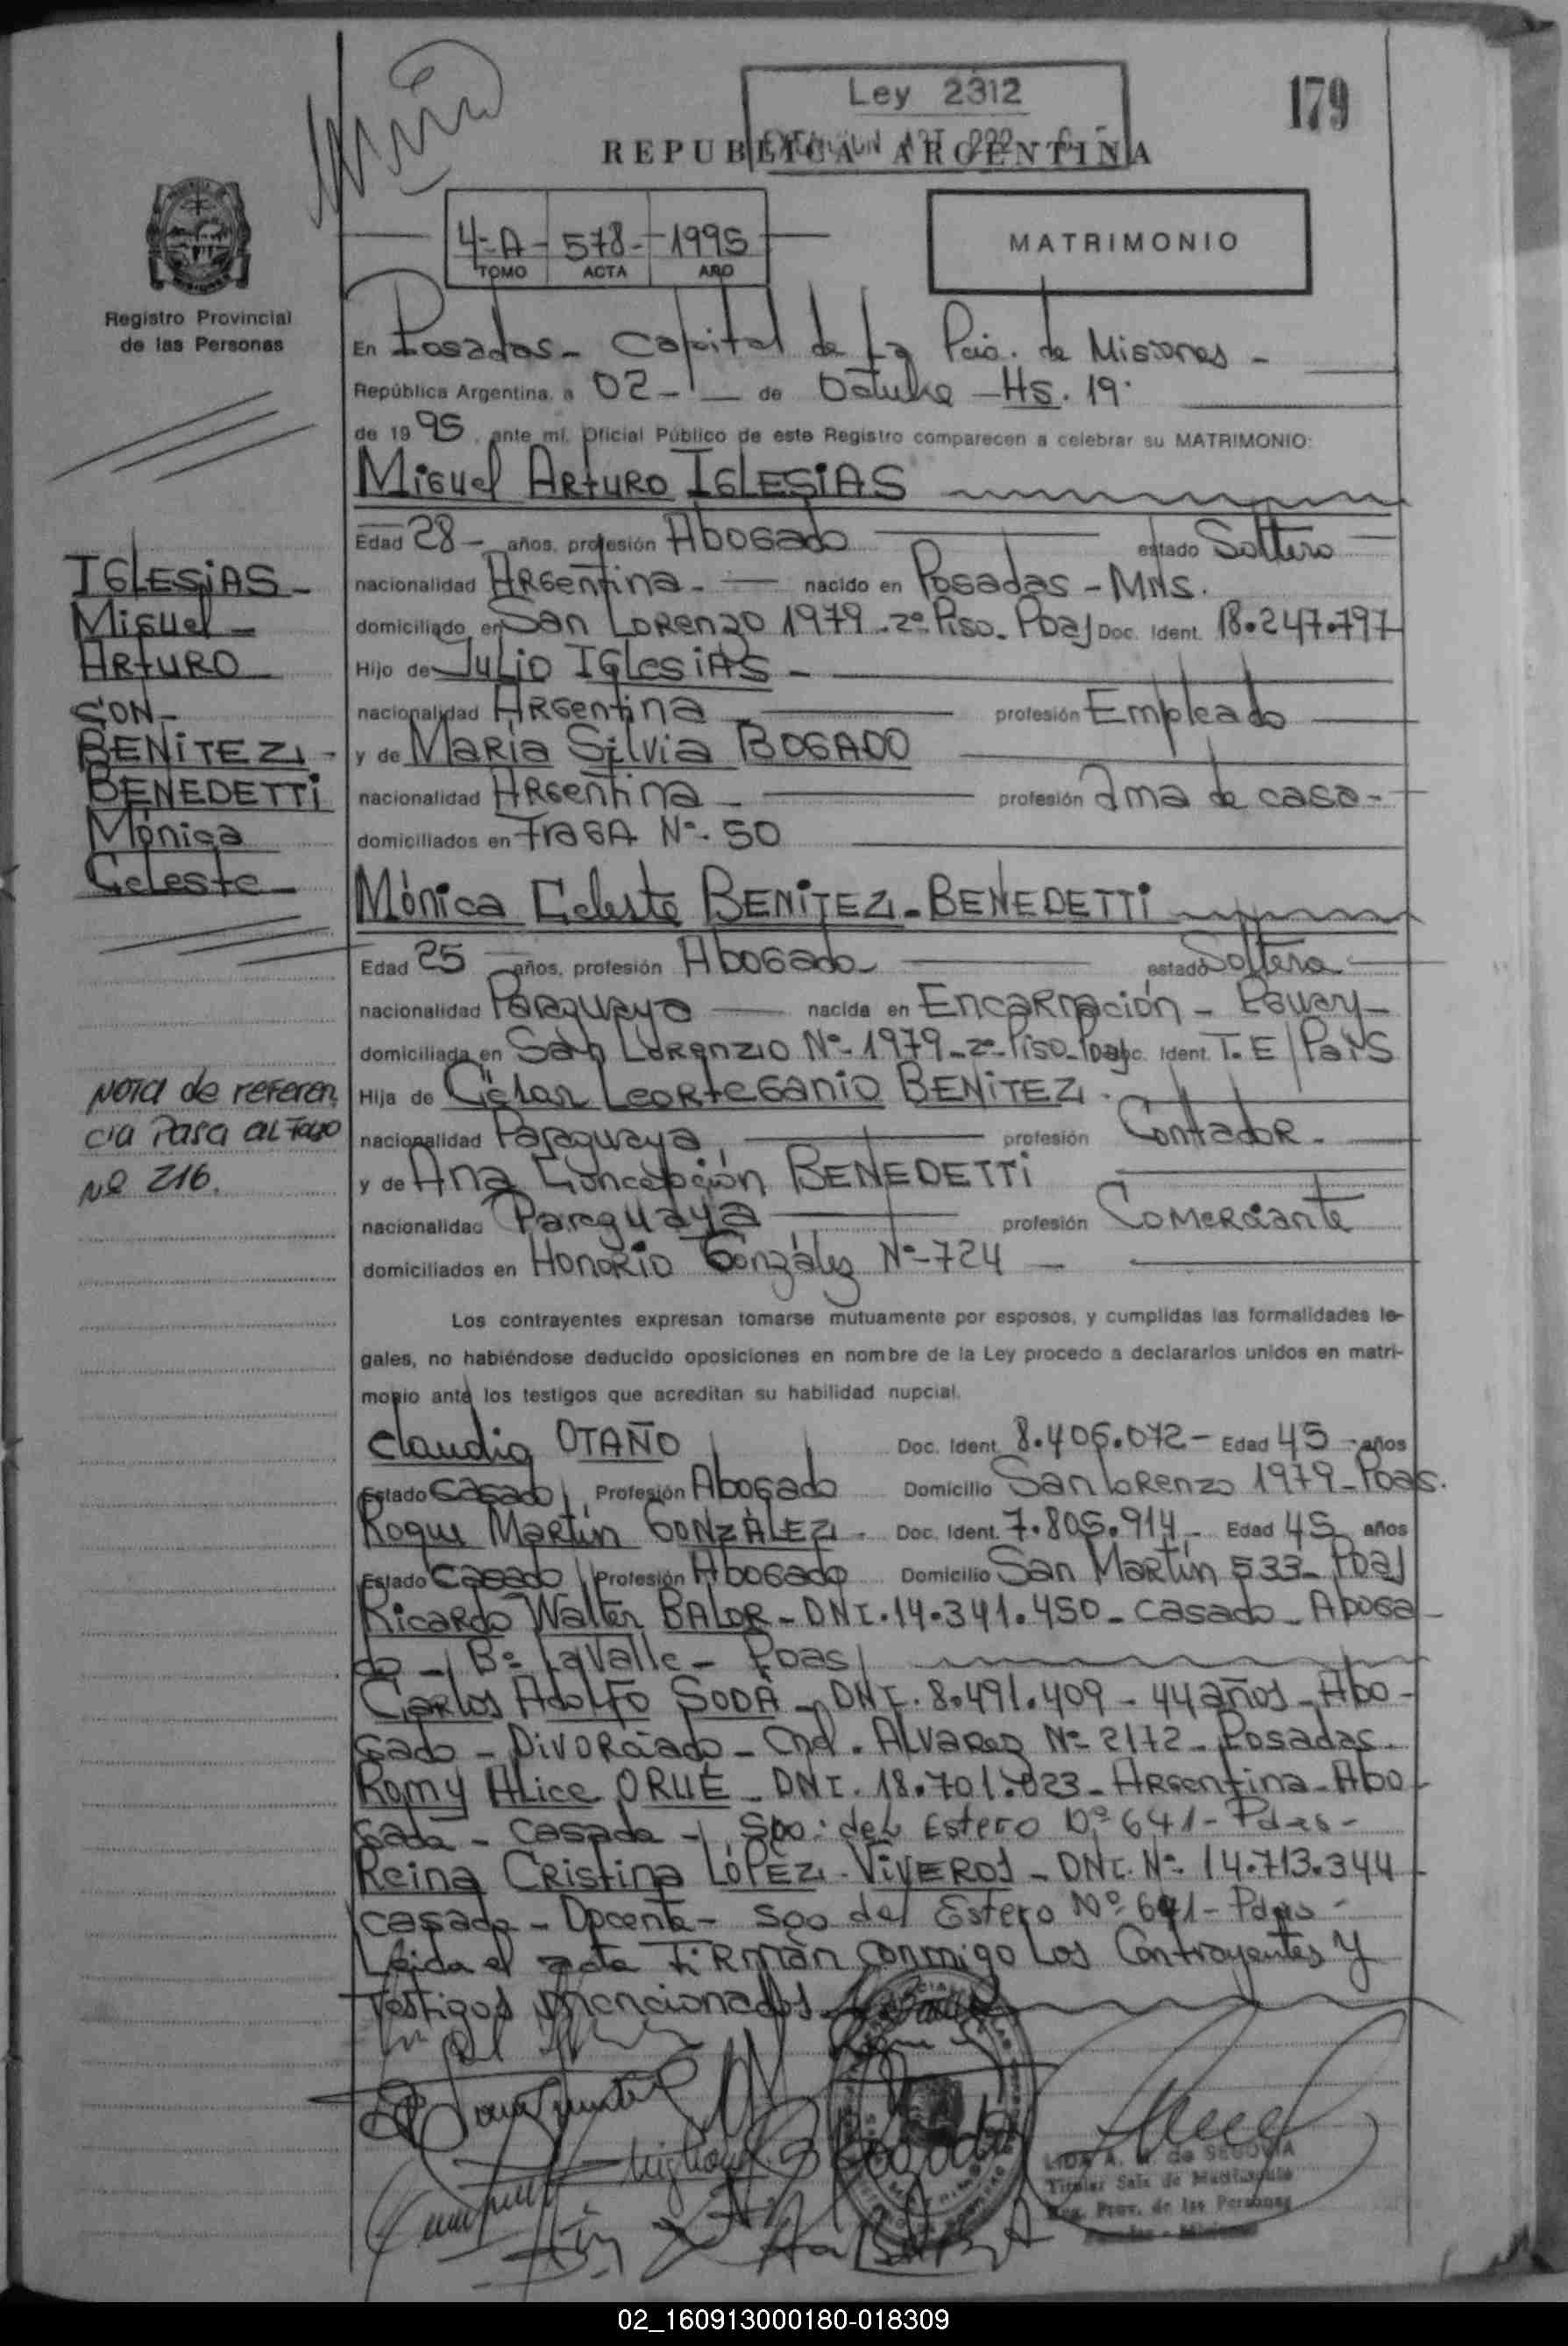 179
Ley 2312
REPUBLICA ARGENTINA
4-A- 578- 1995
TOMO ACTA AÑO
MATRIMONIO
Registro Provincial
de las Personas
En Posadas - Capital de la Pcia. de Misiones -
República Argentina, a 02 - de Octubre - Hs. 19.
de 1995, ante mí, Oficial Público de este Registro comparecen a celebrar su MATRIMONIO:
Miguel Arturo IGLESIAS
Edad 28 - años, profesión Abogado estado Soltero
nacionalidad Argentina - nacido en Posadas - Mns.
domiciliado en San Lorenzo 1979 - 2º Piso - Pdas Doc. Ident. 18.247.797
Hijo de Julio IGLESIAS -
nacionalidad Argentina profesión Empleado
y de Maria Silvia BOGADO
nacionalidad Argentina - profesión Ama de casa -
domiciliados en Fraga Nº - 50
IGLESIAS -
Miguel -
Arturo
CON -
BENITEZ -
BENEDETTI
Mónica
Celeste -
Mónica Celeste BENITEZ - BENEDETTI
Edad 25 años, profesión Abogado estado Soltera
nacionalidad Paraguaya nacida en Encarnación -
domiciliada en San Lorenzo Nº - 1979 - 2º Piso - Pdas Doc. Ident. T. E / País
Hija de César BENITEZ .
nacionalidad Paraguaya, profesión Contador -
y de Ana Concepción BENEDETTI
nacionalidad Paraguaya profesión Comerciante
domiciliados en Honorio González Nº - 724 -
Nota de referen
cia Pasa al Folio
Nº 216.
Los contrayentes expresan tomarse mutuamente por esposos, y cumplidas las formalidades le-
gales, no habiéndose deducido oposiciones en nombre de la Ley procedo a declararlos unidos en matri-
monio ante los testigos que acreditan su habilidad nupcial.
OTAÑO Doc. Ident. 8.406.072 - Edad 45 - años
Estado Casado Profesión Abogado Domicilio San Lorenzo 1979 - Pdas.
Roque Martín GONZÁLEZ - Doc. Ident. 7.805.914 - Edad 45 años
Estado Casado Profesión Abogado Domicilio San Martín 533 - Pdas
Ricardo Walter BALOR - DNI. 14.341.450 - Casado - Aboga-
do - Bº Lavalle - Pdas
Carlos Adolfo SODÁ - DNI. 8.491.409 - 44 años - Abo-
gado - Divorciado - Cnel. Alvarez Nº 2172 - Posadas -
Romy Alice ORUÉ - DNI. 18.701.023 - Argentina - Abo-
gada - Casada - Sgo. del Estero Nº 641 - Pdas -
Reina Cristina LÓPEZ - VIVEROS - DNI. Nº - 14.713.344
casada - Docente - Sgo del Estero Nº 641 - Pdas -
Leida el acta firman conmigo los Contrayentes y
testigos mencionados
LIDA A. de SEGOVIA
Titular Sala de Matrimonio
Reg. Prov. de las Personas
02_160913000180-018309